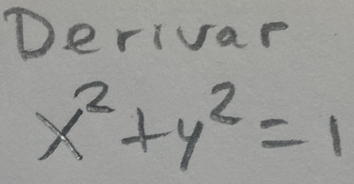 Derivar
x² + y² = 1